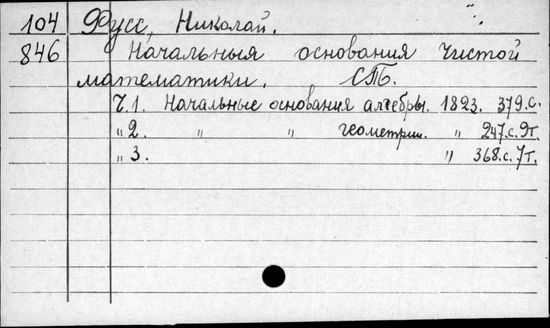 104 Фусс, Николай.
846 Начальныя основания чистой
математики. СПб.
Ч.1. Начальные основания алгебры. 1823. 379.с.
„ 2. „ „ геометрии. „ 247.с.9т.
„ 3. „ 368.с.7т.